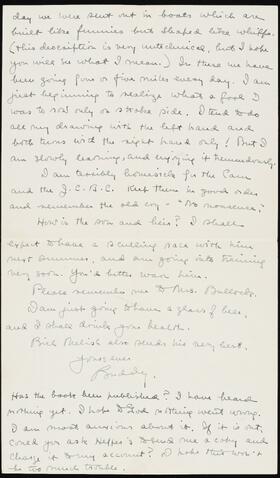 day we were sent out in boats which are
built like funnies but shaped like whiffs.
(this description is very untechnical, but I hope
you will see what I mean.) In these we have
been going four or five miles every day. I am
just beginning to realize what a fool I
was to row only on stroke side. I tend to do
all my drawing with the left hand and
both turns with the right hand only! But I
am slowly learning, and enjoying it tremendously.
I am terribly homesick for the Cam
and the J.C.B.C. Keep them in good order
and remember the old cry - "No nonsense."
How is the son and heir? I shall
expect to have a sculling race with him
next summer, and am going into training
very soon. You'd better warn him.
Please remember me to Mrs. Bullock.
I am just going to have a glass of beer,
and I shall drink your health.
Bill also sends his very best.
Yours ever
Buddy.
Has the book been published? I have heard
nothing yet. I hope to God nothing went wrong.
I am most anxious about it. If it is out,
could you ask to send me a copy and
charge it to my account? I hope this won't
be too much trouble.